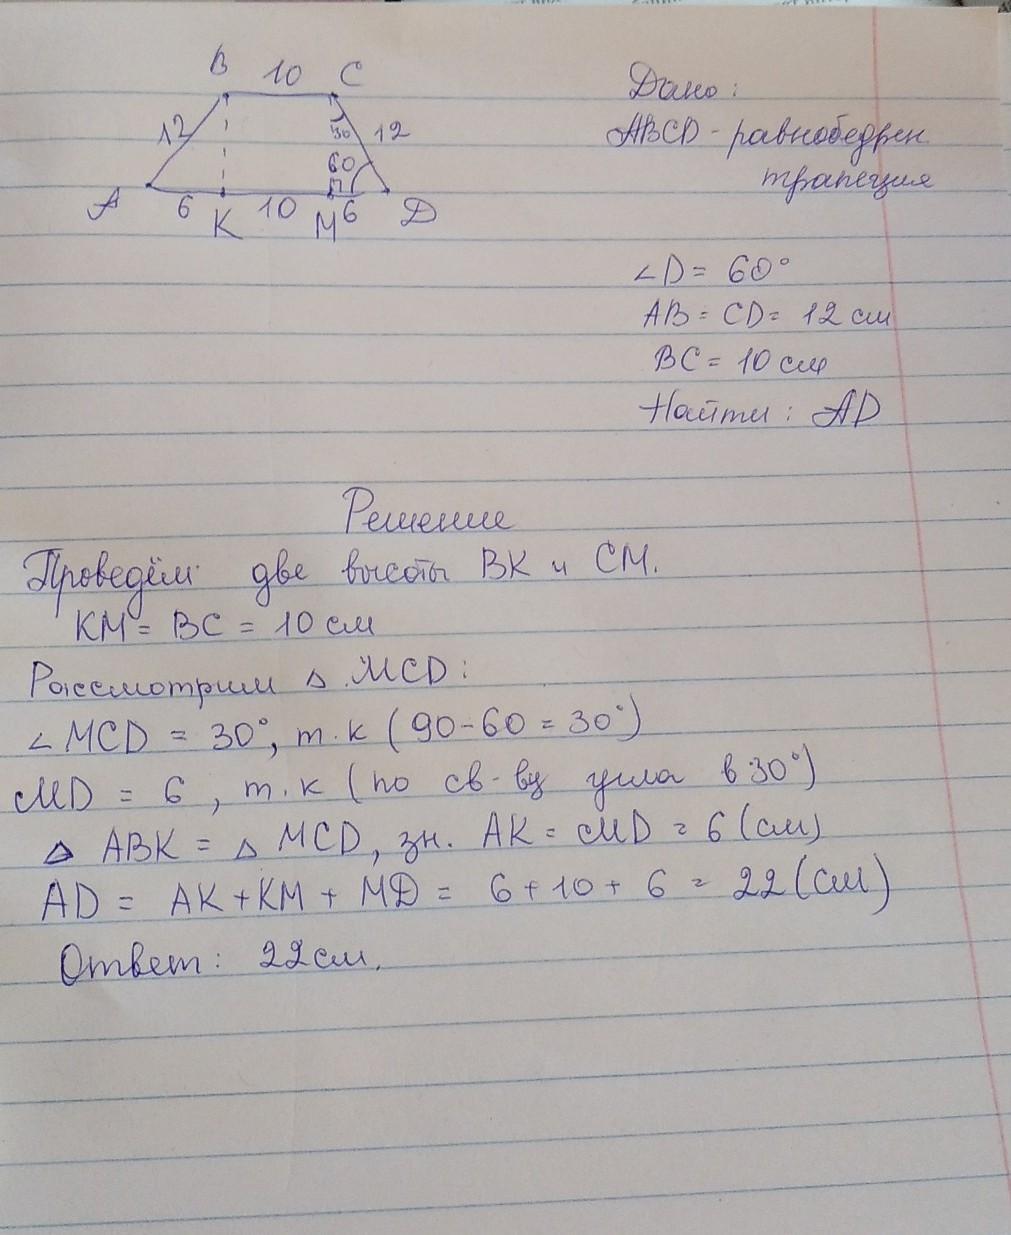 B 10 C
12 30 12
60
A 6 K 10 M 6 D
Дано:
ABCD - равнобедрен
трапеция
∠D = 60°
AB = CD = 12 см
BC = 10 см
Найти: AD
Решение
Проведём две высоты BK и CM.
KM = BC = 10 см
Рассмотрим △ MCD:
∠ MCD = 30°, т.к (90-60 = 30°)
MD = 6, т.к (по св-ву угла в 30°)
△ ABK = △ MCD, зн. AK = MD = 6 (см)
AD = AK + KM + MD = 6 + 10 + 6 = 22 (см)
Ответ: 22 см.